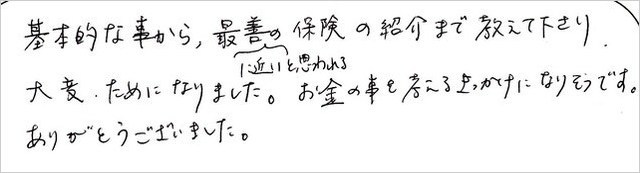 基本的な事から,最善の保険の紹介まで教えて下さり.
に近いと思われる
大変.ためになりました。お金の事を考えるきっかけになりそうです。
ありがとうございました。